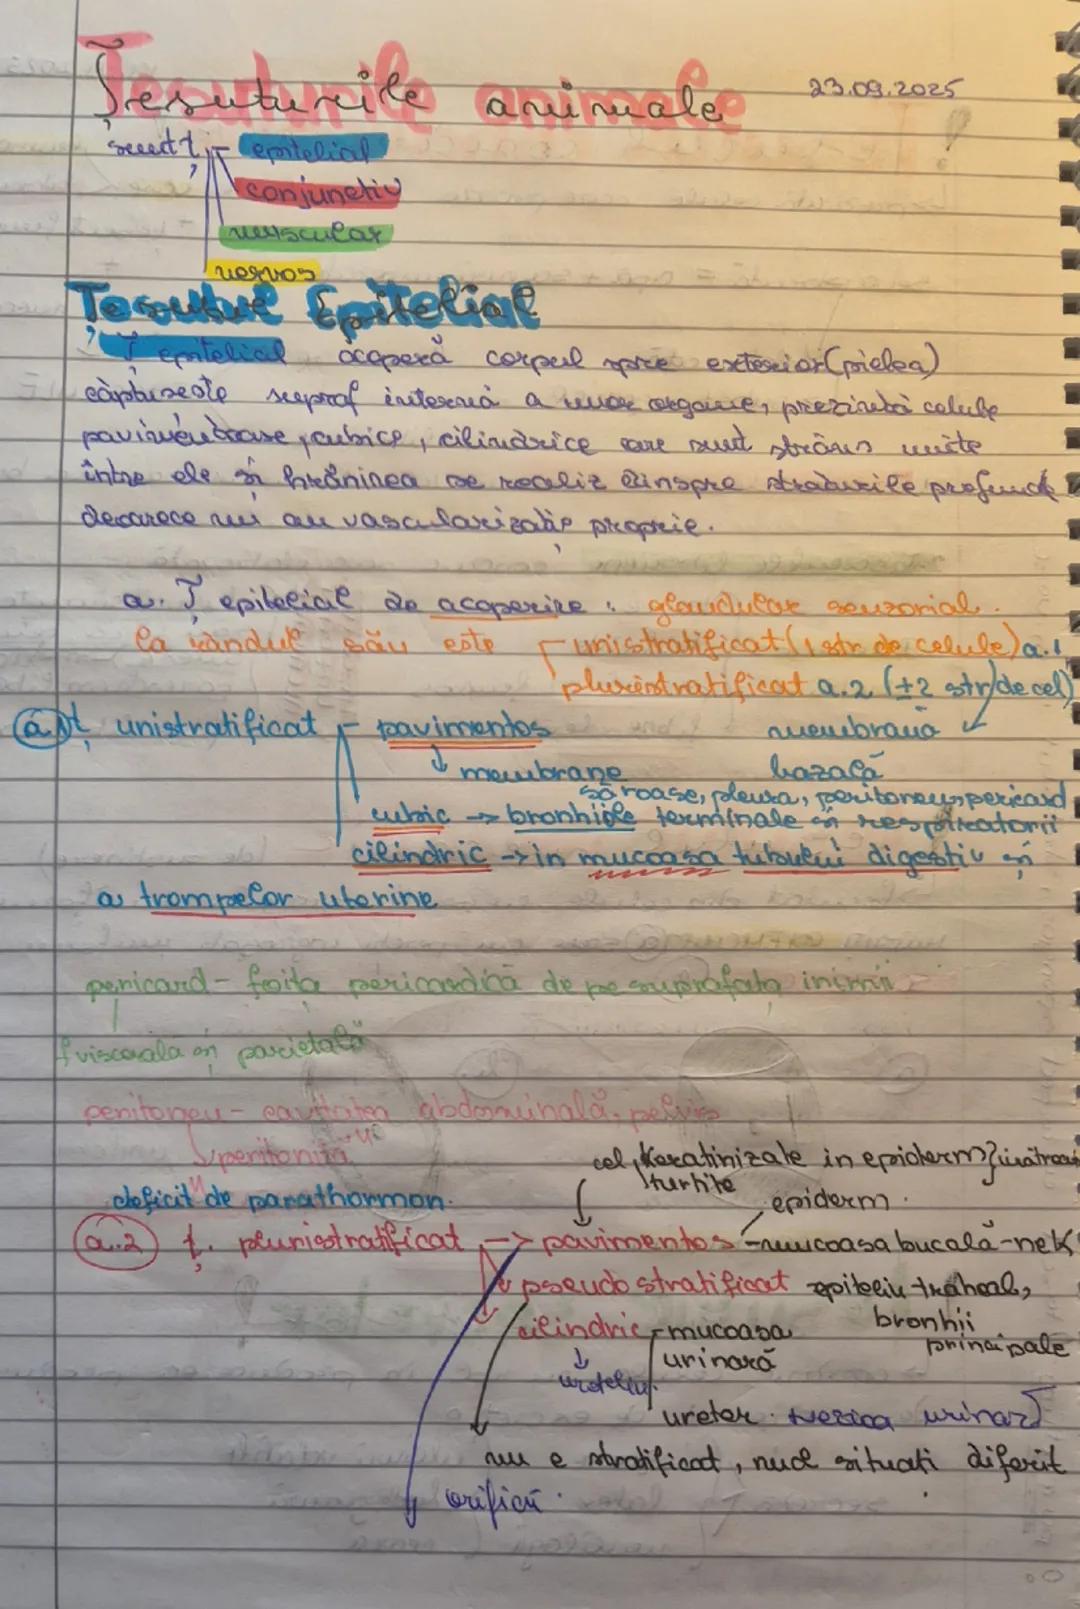 Țesuturile animale 23.09.2025
sunt ț epitelial
conjunctiv
muscular
nervos
Țesutul Epitelial
Ț epitelial acoperă corpul spre exterior (pielea)
căptușește supraf internă a unor organe, prezintă celule
pavimentoase, cubice, cilindrice care sunt strâns unite
între ele și hrănirea se realiz dinspre straturile profunde
deoarece nu au vascularizație proprie.
a. Ț epitelial de acoperire : glandular senzorial.
la rândul său este unistratificat (1 str de celule) a.1
pluristratificat a.2 (±2 str/de cel)
a.1 ț unistratificat pavimentos membrană
↓ membrane bazală
seroase, pleura, peritoneu, pericard
cubic → bronhiole terminale și respiratorii
cilindric → în mucoasa tubului digestiv și
a trompelor uterine
pericard - foița pericardică de pe suprafața inimii
f viscerală și parietală
peritoneu - cavitatea abdominală, pelvis
peritonită
deficit de parathormon.
cel, Keratinizate in epiderm}
turtite
epiderm.
a.2 ț. pluristratificat → pavimentos - mucoasa bucală - nek
pseudo stratificat epiteliu traheal,
bronhii
principale
cilindric - mucoasa
↓ urinară
uroteliu.
ureter. vezica urinar
nu e stratificat, nucl situați diferit
orificii.